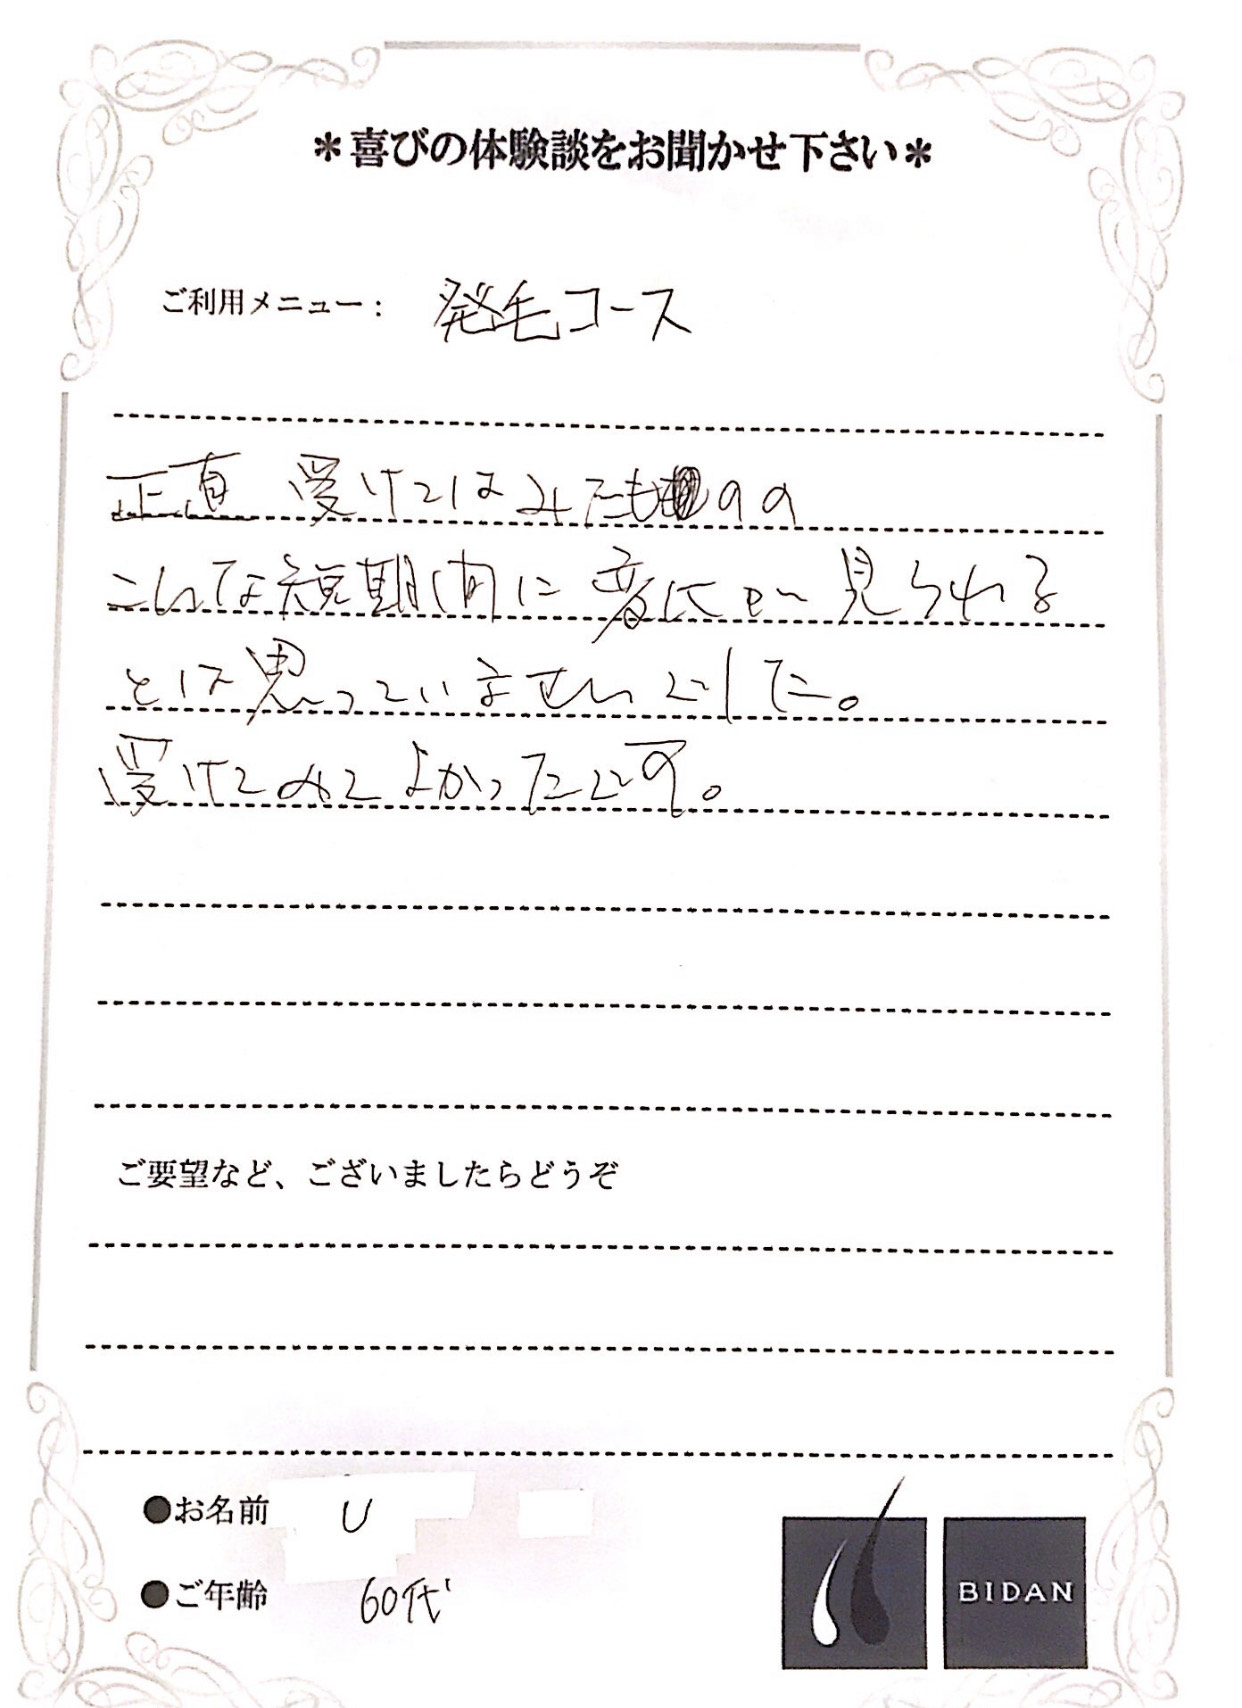 ＊喜びの体験談をお聞かせ下さい＊
ご利用メニュー： 発毛コース
正直 受けてはみたものの
こんな短期間に変化が見られる
とは思っていませんでした。
受けてみてよかったです。
ご要望など、ございましたらどうぞ
●お名前 U
●ご年齢 60代
BIDAN